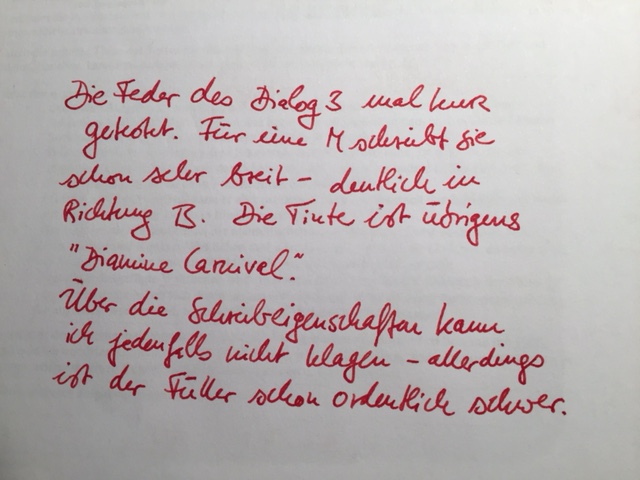 Die Feder des Dialog 3 mal kurz
getestet. Für eine M schreibt sie
schon sehr breit – deutlich in
Richtung B. Die Tinte ist übrigens
"Diamine Carnival".
Über die Schreibeigenschaften kann
ich jedenfalls nicht klagen – allerdings
ist der Füller schon ordentlich schwer.